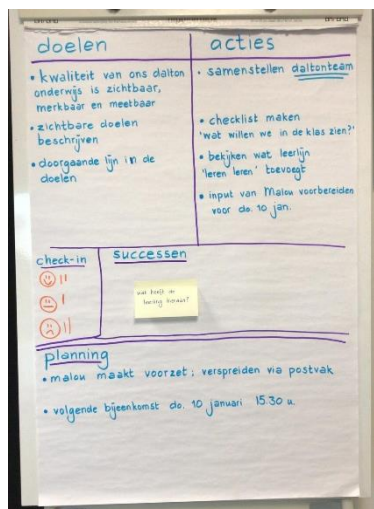 doelen
• kwaliteit van ons dalton
onderwijs is zichtbaar,
merkbaar en meetbaar
• zichtbare doelen
beschrijven
• doorgaande lijn in de
doelen
acties
• samenstellen daltonteam
• checklist maken
'wat willen we in de klas zien?'
• bekijken wat leerlijn
'leren leren' toevoegt
• input van Malou voorbereiden
voor do. 10 jan.
check-in
successen
planning
• malou maakt voorzet; verspreiden via postvak
• volgende bijeenkomst do. 10 januari 15.30 u.